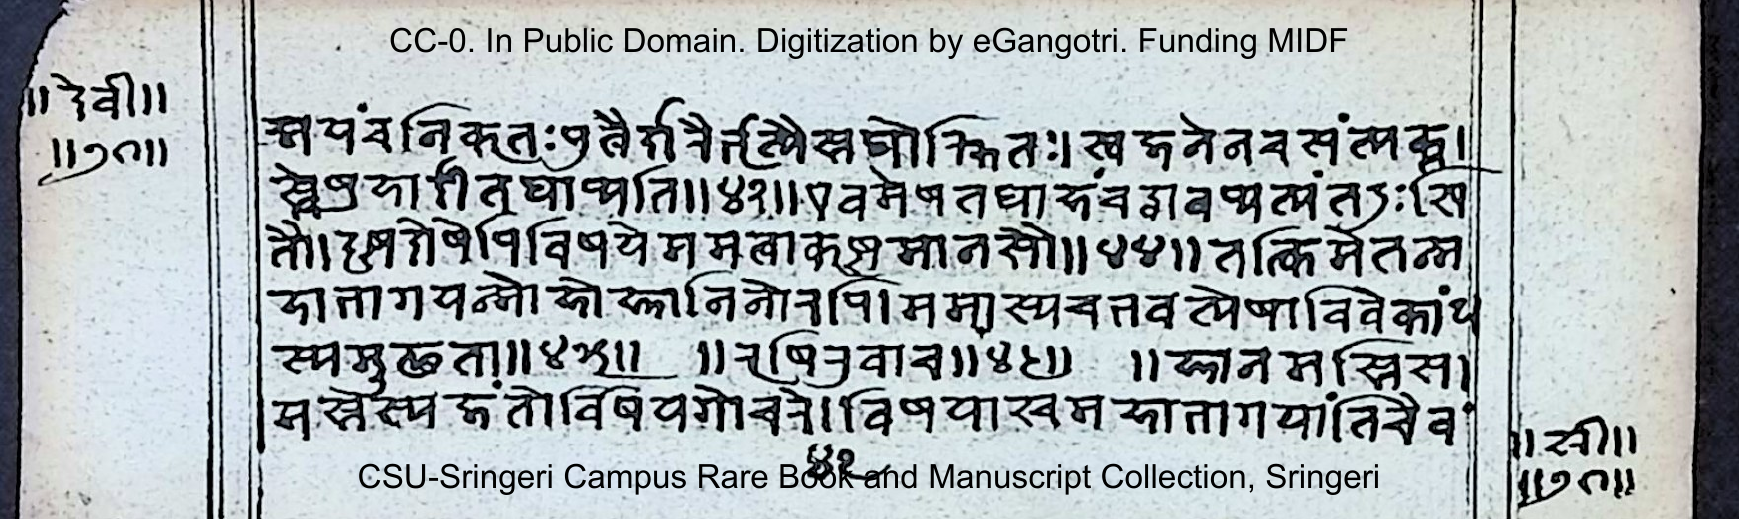 CC-0. In Public Domain. Digitization by eGangotri. Funding MIDF
॥देवी॥
॥७०॥
अयं च निकृतः पुत्रैर्दारैर्भृत्यैस्तथोज्झितः। स्वजनेन च संत्यक्त
स्तेषु हार्दी तथाप्यति॥४३॥ एवमेष तथाहं च द्वावप्यत्यंतदुःखि
तौ। दृष्टदोषेपि विषये ममत्वाकृष्टमानसौ॥४४॥ तत्किमेतन्म
हाभाग यन्मोहो ज्ञानिनोरपि। ममास्य च भवत्येषा विवेकांध
स्य मूढता॥४५॥ ॥ऋषिरुवाच॥४६॥ ॥ज्ञानमस्ति स
मस्तस्य जंतोर्विषयगोचरे। विषयाश्च महाभाग यांति चैवं
॥श्री॥
॥७०॥
CSU-Sringeri Campus Rare Book and Manuscript Collection, Sringeri